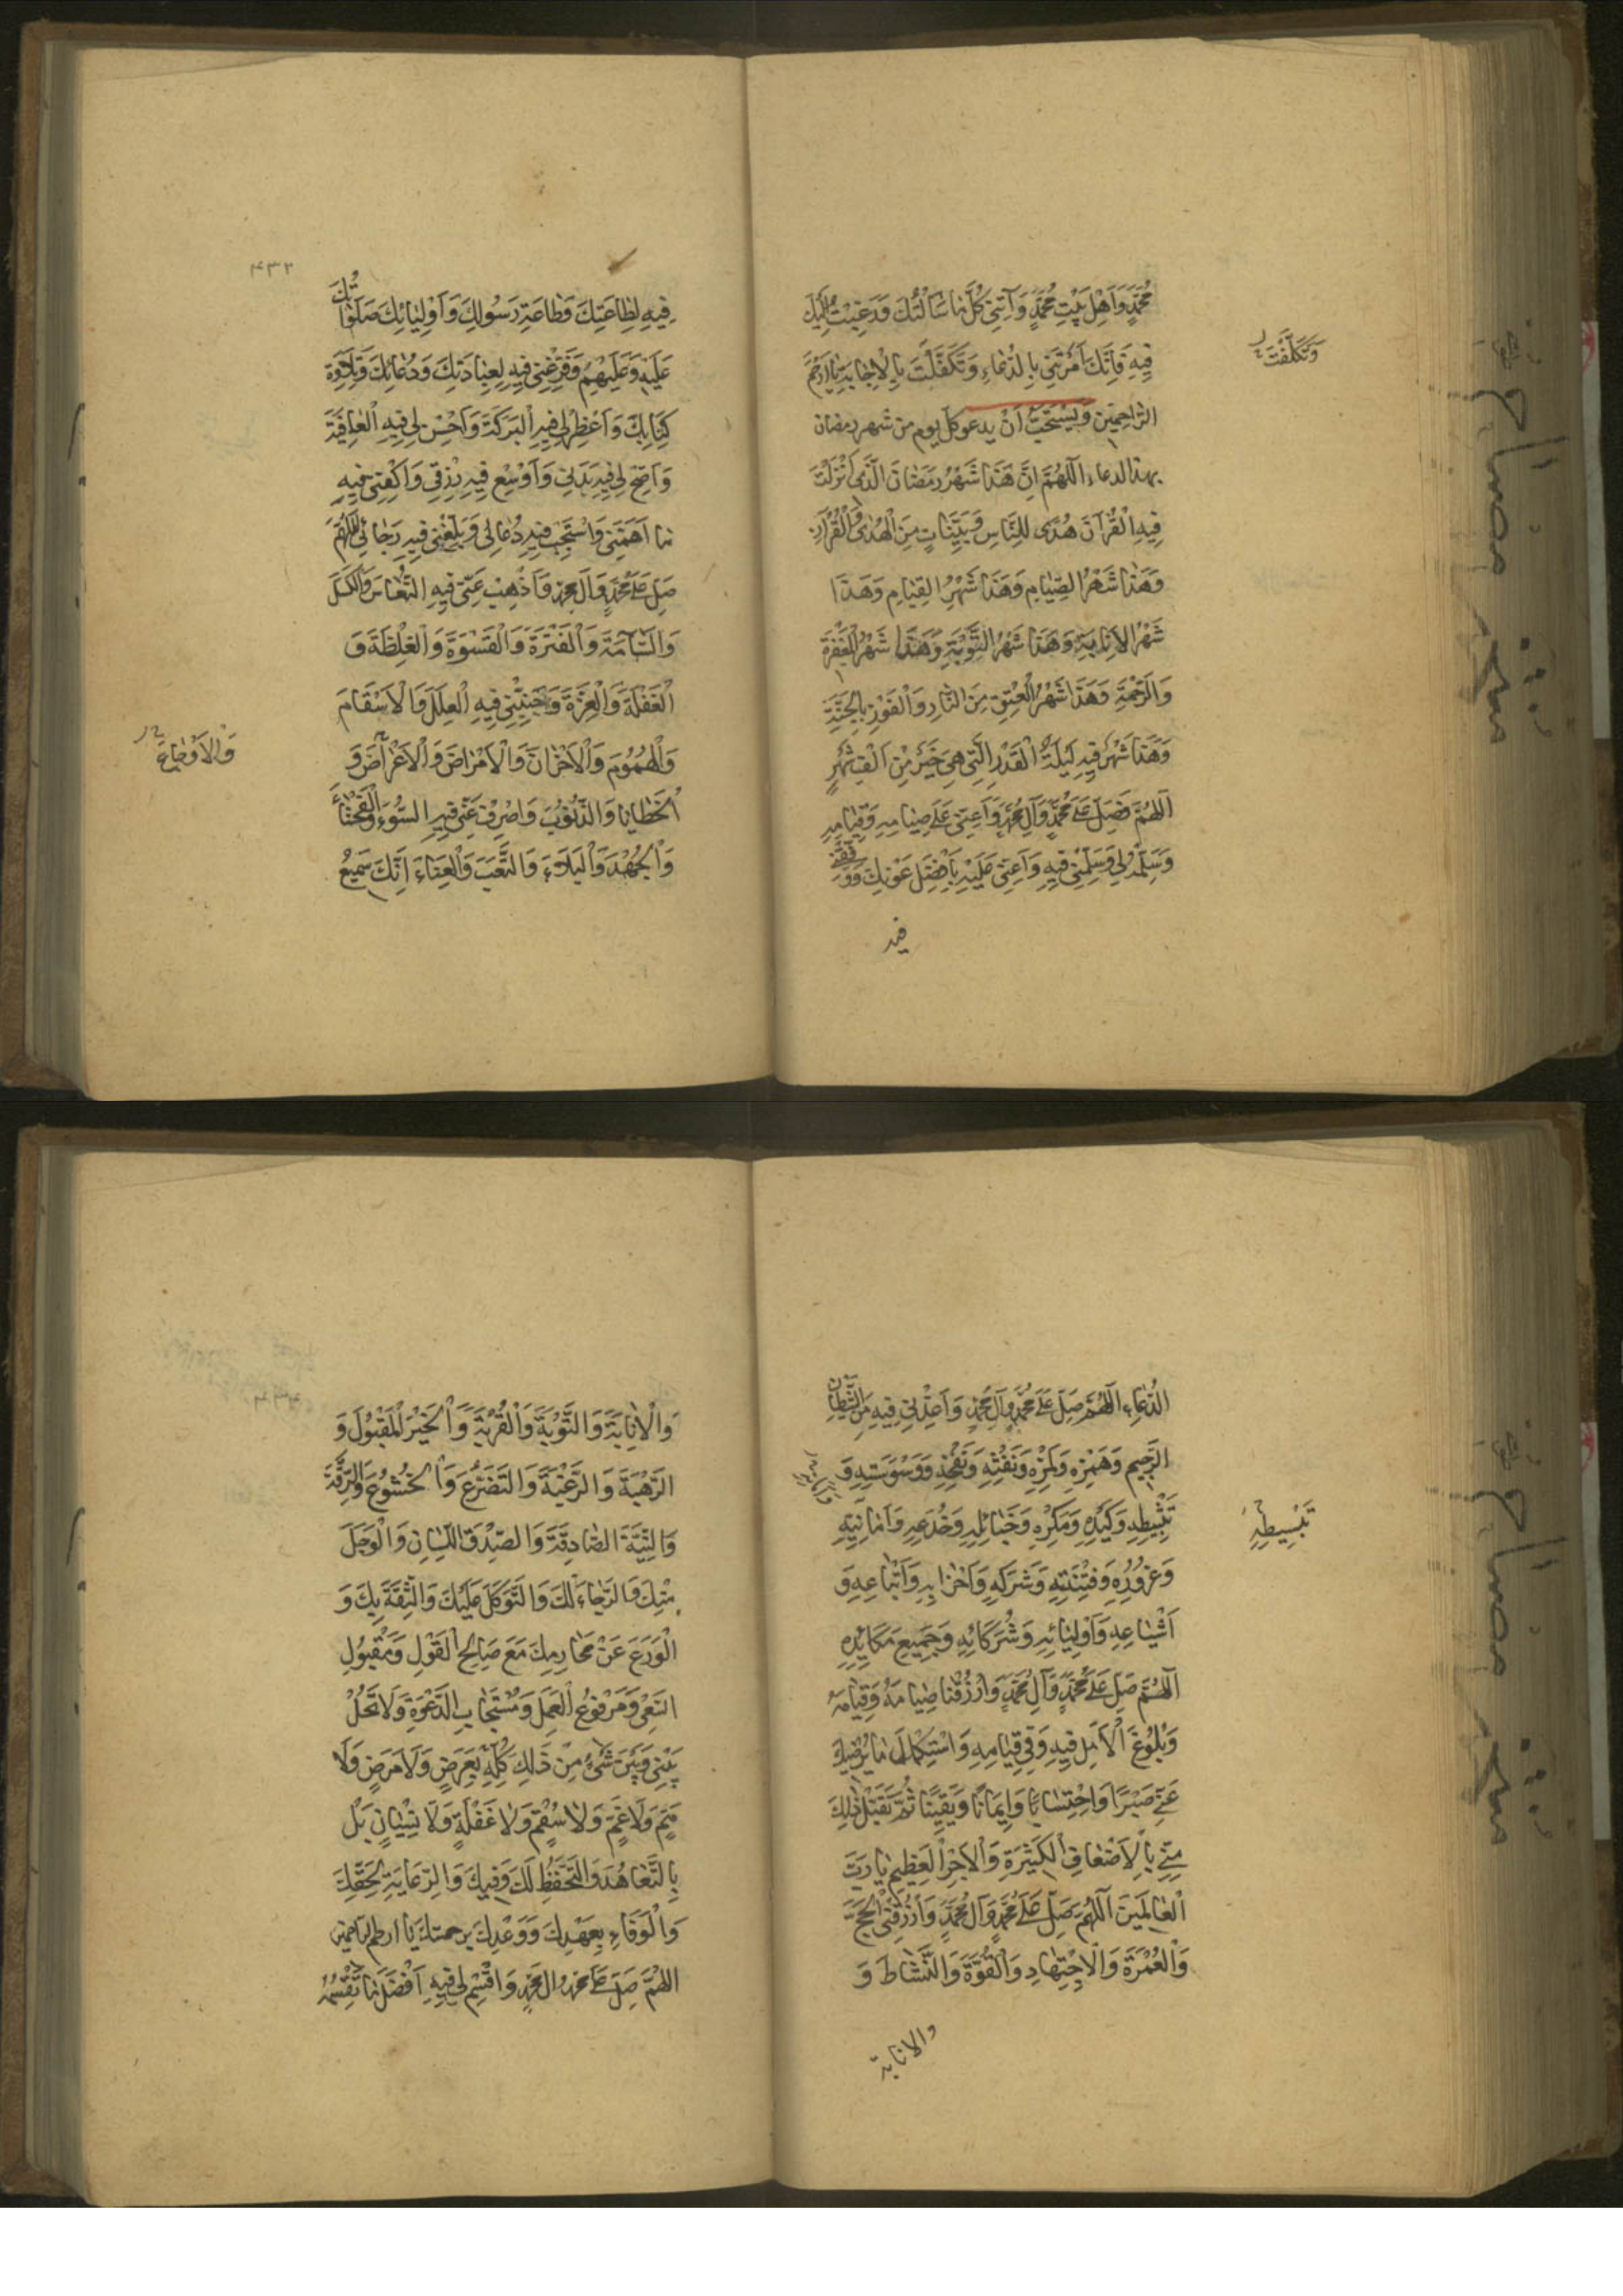 مُحَمَّدٍ وَاَهْلِ بَيْتِ مُحَمَّدٍ وَآتِنِى كُلَّ مٰا سَأَلْتُكَ وَرَغِبْتُ اِلَيْكَ
فِيهِ فَاِنَّكَ اَمَرْتَنِى بِالدُّعٰاءِ وَتَكَفَّلْتَ بِالْاِجٰابَةِ يٰا اَرْحَمَ
وَتَكَلَّفْتَ
الرّٰاحِمِينَ وَيُسْتَحَبُّ اَنْ يدعو كل يوم من شهر رمضان
بهذا الدعاء اَللّٰهُمَّ اِنَّ هَذٰا شَهْرُ رَمَضٰانَ الَّذِى اَنْزَلْتَ
فِيهِ الْقُرْآنَ هُدًى لِلنّٰاسِ وَبَيِّنٰاتٍ مِنَ الْهُدٰى وَالْفُرْقٰانِ
وَهَذٰا شَهْرُ الصِّيٰامِ وَهَذٰا شَهْرُ الْقِيٰامِ وَهَذٰا
شَهْرُ الْاِنٰابَةِ وَهَذٰا شَهْرُ التَّوْبَةِ وَهَذٰا شَهْرُ الْمَغْفِرَةِ
وَالرَّحْمَةِ وَهَذٰا شَهْرُ الْعِتْقِ مِنَ النّٰارِ وَالْفَوْزِ بِالْجَنَّةِ
وَهَذٰا شَهْرٌ فِيهِ لَيْلَةُ الْقَدْرِ الَّتِى هِىَ خَيْرٌ مِنْ اَلْفِ شَهْرٍ
اَللّٰهُمَّ فَصَلِّ عَلَى مُحَمَّدٍ وَآلِ مُحَمَّدٍ وَاَعِنِّى عَلَى صِيٰامِهِ وَقِيٰامِهِ
وَسَلِّمْهُ لِى وَسَلِّمْنِى فِيهِ وَاَعِنِّى عَلَيْهِ بِاَفْضَلِ عَوْنِكَ وَوَفِّقْنِى
فيه
۴۳۲
فِيهِ لِطٰاعَتِكَ وَطٰاعَةِ رَسُولِكَ وَاَوْلِيٰائِكَ صَلَوٰاتُكَ
عَلَيْهِ وَعَلَيْهِمْ وَفَرِّغْنِى فِيهِ لِعِبٰادَتِكَ وَدُعٰائِكَ وَتِلٰاوَةِ
كِتٰابِكَ وَاَعْظِمْ لِى فِيهِ الْبَرَكَةَ وَاَحْسِنْ لِى فِيهِ الْعٰافِيَةَ
وَاَصِحَّ لِى فِيهِ بَدَنِى وَاَوْسِعْ فِيهِ رِزْقِى وَاكْفِنِى فِيهِ
مٰا اَهَمَّنِى وَاسْتَجِبْ فِيهِ دُعٰائِى وَبَلِّغْنِى فِيهِ رَجٰائِى اَللّٰهُمَّ
صَلِّ عَلَى مُحَمَّدٍ وَآلِ مُحَمَّدٍ وَاَذْهِبْ عَنِّى فِيهِ النُّعٰاسَ وَالْكَسَلَ
وَالسَّآمَةَ وَالْفَتْرَةَ وَالْقَسْوَةَ وَالْغِلْظَةَ وَ
الْغَفْلَةَ وَالْغِرَّةَ وَجَنِّبْنِى فِيهِ الْعِلَلَ وَالْاَسْقٰامَ
وَالْهُمُومَ وَالْاَحْزٰانَ وَالْاَمْرٰاضَ وَالْاَعْرٰاضَ وَ
وَالْاَوْجٰاعَ
الْخَطٰايٰا وَالذُّنُوبَ وَاصْرِفْ عَنِّى فِيهِ السُّوءَ وَالْفَحْشٰاءَ
وَالْجُهْدَ وَالْبَلٰاءَ وَالتَّعَبَ وَالْعَنٰاءَ اِنَّكَ سَمِيعُ
الدُّعٰاءِ اَللّٰهُمَّ صَلِّ عَلَى مُحَمَّدٍ وَآلِ مُحَمَّدٍ وَاَعِذْنِى فِيهِ مِنَ الشَّيْطٰانِ
الرَّجِيمِ وَهَمْزِهِ وَلَمْزِهِ وَنَفْثِهِ وَنَفْخِهِ وَوَسْوَسَتِهِ وَ
تَثْبِيطِهِ وَكَيْدِهِ وَمَكْرِهِ وَحَبٰائِلِهِ وَخُدَعِهِ وَاَمٰانِيِّهِ
تَبْسِيطِهِ
وَغُرُورِهِ وَفِتْنَتِهِ وَشَرَكِهِ وَاَحْزٰابِهِ وَاَتْبٰاعِهِ وَ
اَشْيٰاعِهِ وَاَوْلِيٰائِهِ وَشُرَكٰائِهِ وَجَمِيعِ مَكٰائِدِهِ
اَللّٰهُمَّ صَلِّ عَلَى مُحَمَّدٍ وَآلِ مُحَمَّدٍ وَارْزُقْنٰا صِيٰامَهُ وَقِيٰامَهُ
وَبُلُوغَ الْاَمَلِ فِيهِ وَفِى قِيٰامِهِ وَاسْتِكْمٰالَ مٰا يُرْضِيكَ
عَنِّى صَبْرًا وَاحْتِسٰابًا وَاِيمٰانًا وَيَقِينًا ثُمَّ تَقَبَّلْ ذٰلِكَ
مِنِّى بِالْاَضْعٰافِ الْكَثِيرَةِ وَالْاَجْرِ الْعَظِيمِ يٰا رَبَّ
الْعٰالَمِينَ اَللّٰهُمَّ صَلِّ عَلَى مُحَمَّدٍ وَآلِ مُحَمَّدٍ وَارْزُقْنِى الْحَجَّ
وَالْعُمْرَةَ وَالْاِجْتِهٰادَ وَالْقُوَّةَ وَالنَّشٰاطَ وَ
والانابة
وَالْاِنٰابَةَ وَالتَّوْبَةَ وَالْقُرْبَةَ وَالْخَيْرَ الْمَقْبُولَ وَ
الرَّهْبَةَ وَالرَّغْبَةَ وَالتَّضَرُّعَ وَالْخُشُوعَ وَالرِّقَّةَ
وَالنِّيَّةَ الصّٰادِقَةَ وَالصِّدْقَ اللِّسٰانِ وَالْوَجَلَ
مِنْكَ وَالرَّجٰاءَ لَكَ وَالتَّوَكُّلَ عَلَيْكَ وَالثِّقَةَ بِكَ وَ
الْوَرَعَ عَنْ مَحٰارِمِكَ مَعَ صٰالِحِ الْقَوْلِ وَمَقْبُولِ
السَّعْىِ وَمَرْفُوعِ الْعَمَلِ وَمُسْتَجٰابِ الدَّعْوَةِ وَلَا تَحُلْ
بَيْنِى وَبَيْنَ شَىْءٍ مِنْ ذَلِكَ كُلِّهِ بِعَرَضٍ وَلَا مَرَضٍ وَلَا
هَمٍّ وَلَا غَمٍّ وَلَا سُقْمٍ وَلَا غَفْلَةٍ وَلَا نِسْيٰانٍ بَلْ
بِالتَّعٰاهُدِ وَالتَّحَفُّظِ لَكَ وَفِيكَ وَالرِّعٰايَةِ لِحَقِّكَ
وَالْوَفٰاءِ بِعَهْدِكَ وَوَعْدِكَ برحمتك يٰا ارحم الراحمين
اللّٰهُمَّ صَلِّ عَلَى مُحَمَّدٍ وَالِ مُحَمَّدٍ وَاقْسِمْ لِى فِيهِ اَفْضَلَ مٰا تَقْسِمُهُ